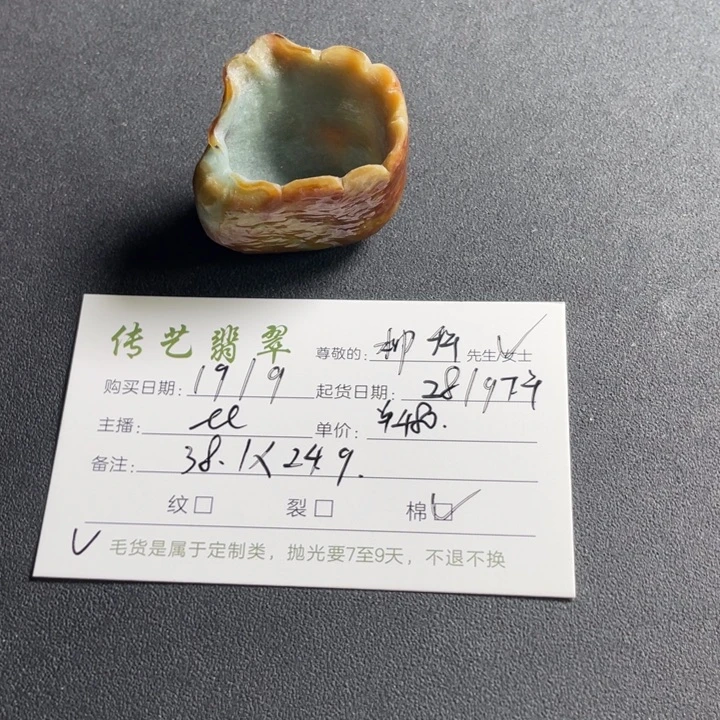 传艺翡翠
尊敬的: 柳 先生/女士
购买日期: 19/9 起货日期: 28/9下
主播: 单价: ¥480.
备注: 38.1X24.9.
纹□ 裂□ 棉□
毛货是属于定制类，抛光要7至9天，不退不换